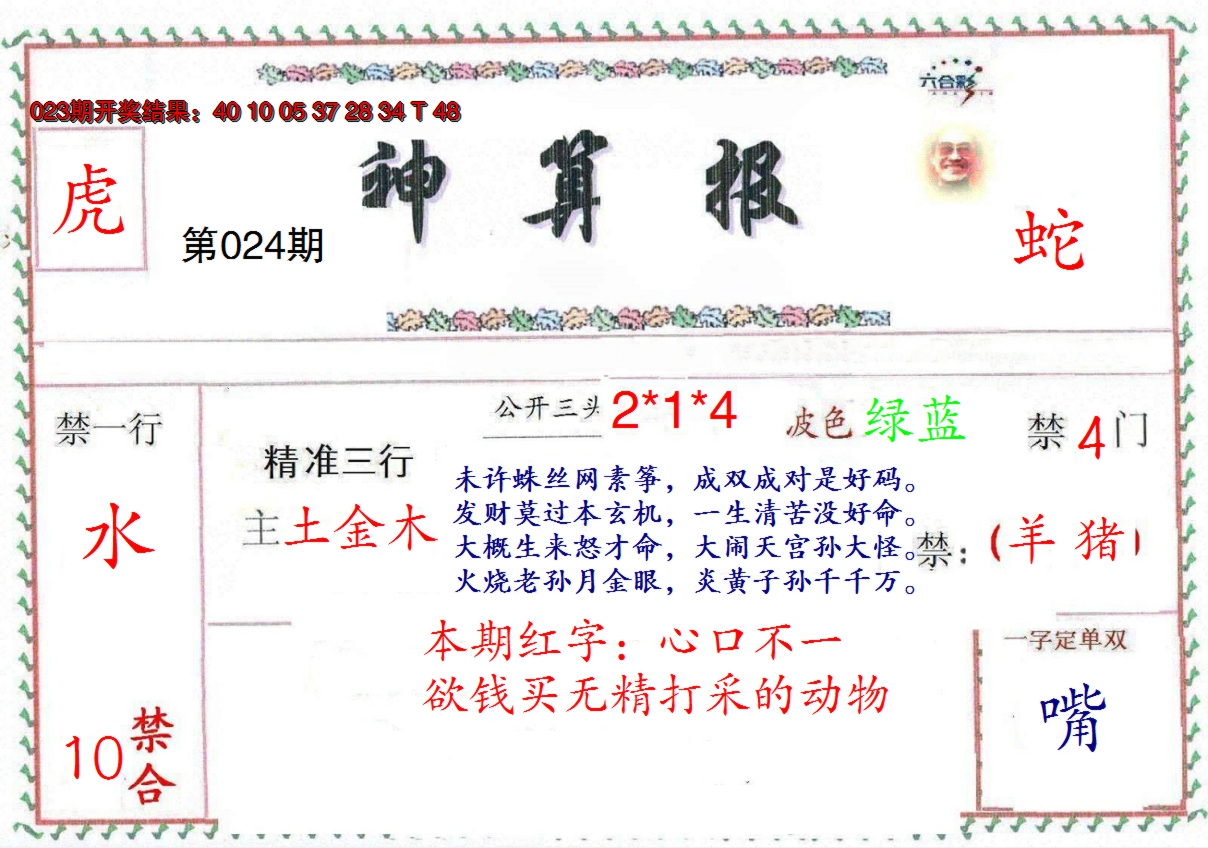 六合彩
023期开奖结果：40 10 05 37 28 34 T 48
虎
神算报
第024期
蛇
禁一行
水
10禁合
公开三头 2*1*4
波色 绿蓝
禁4门
精准三行
主土金木
未许蛛丝网素筝，成双成对是好码。
发财莫过本玄机，一生清苦没好命。
大概生来怒才命，大闹天宫孙大怪。
火烧老孙月金眼，炎黄子孙千千万。
禁：（羊 猪）
本期红字：心口不一
欲钱买无精打采的动物
一字定单双
嘴